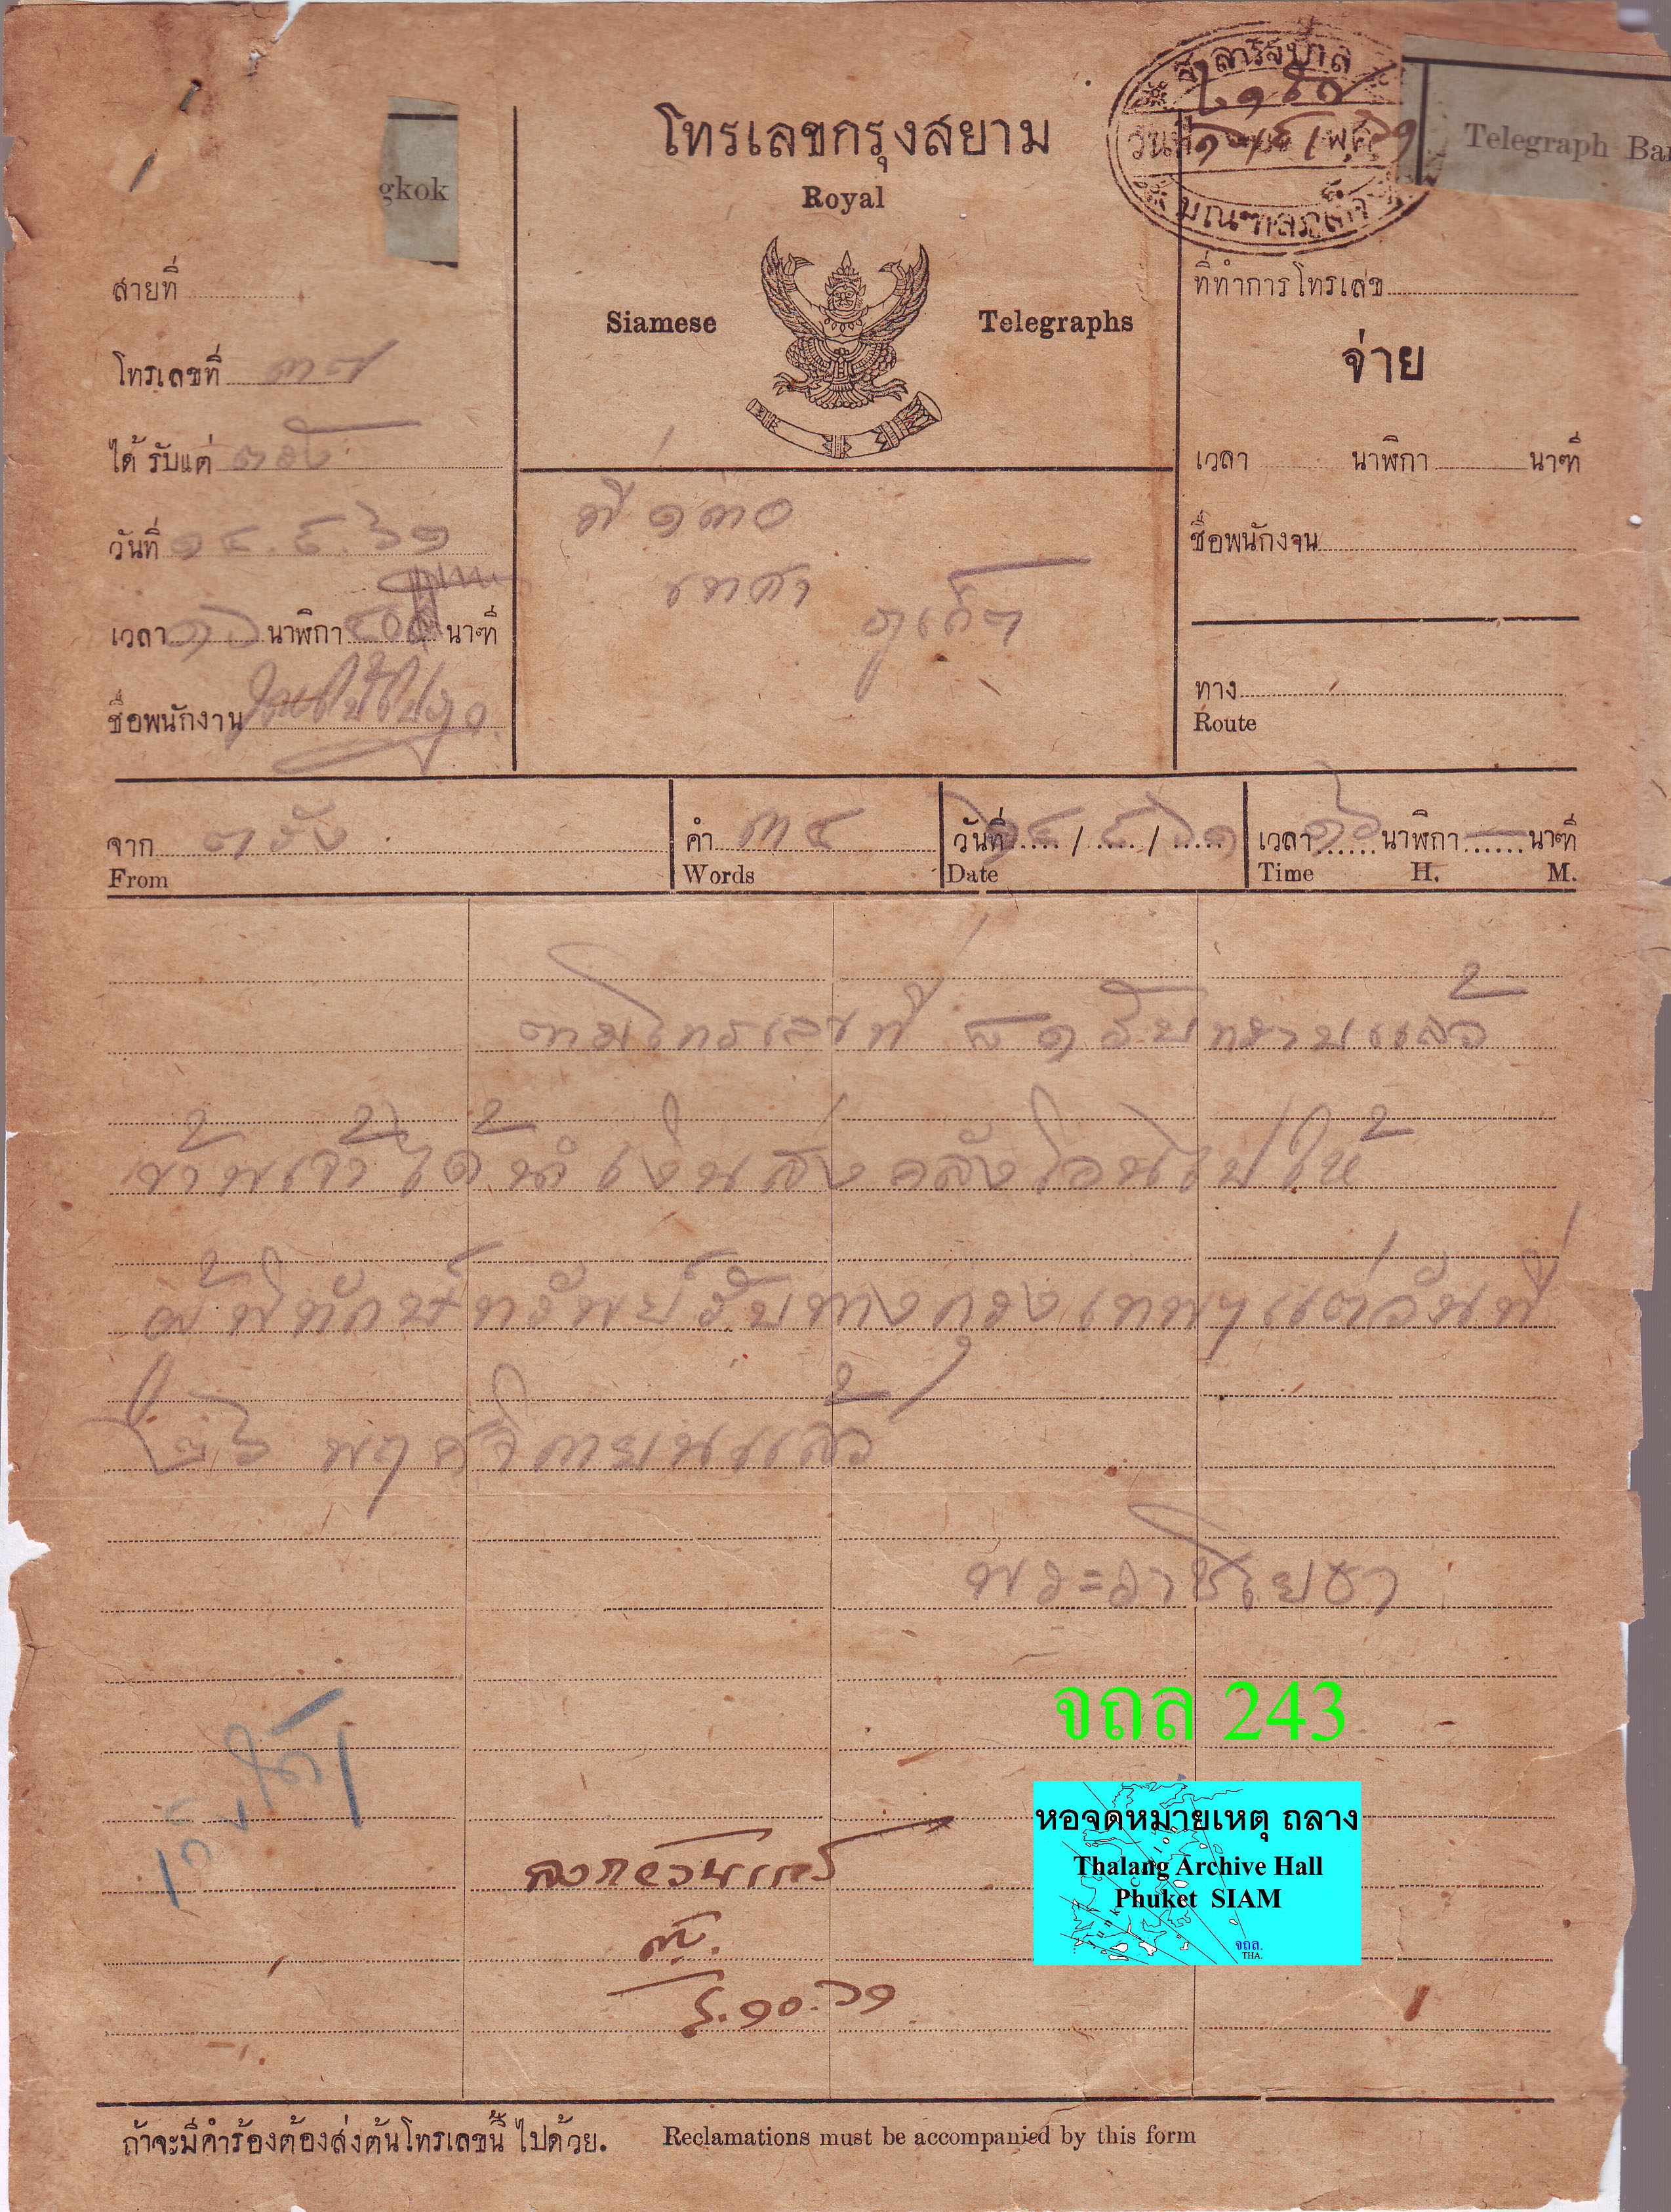 โทรเลขกรุงสยาม
Royal
Siamese Telegraphs
gkok
Telegraph Ba
สารบาล
วันที่
มณฑลภูเก็จ
สายที่
โทรเลขที่ ๓๗
ได้รับแต่ ตรัง
วันที่ ๑๔.๙.๖๑
เวลา ๑๖ นาฬิกา นาฑี
ชื่อพนักงาน
ที่ ๑๓๐
เทศา
ภูเก็ต
ที่ทำการโทรเลข
จ่าย
เวลา นาฬิกา นาฑี
ชื่อพนักงาน
ทาง
Route
จาก ตรัง
From
คำ ๓๔
Words
วันที่ ๑๔/๙/๖๑
Date
เวลา ๑๖ นาฬิกา นาฑี
Time H. M.
ตามโทรเลขที่ รับทราบแล้ว
ข้าพเจ้าได้นำเงินส่งคลังโอนไปให้
ผู้พิทักษ์ทรัพย์รับทางกรุงเทพฯ แต่วันที่
๒๖ พฤศจิกายนแล้ว
พระ
๙.๑๐.๖๑
จถล 243
หอจดหมายเหตุ ถลาง
Thalang Archive Hall
Phuket SIAM
จถล.
THA.
ถ้าจะมีคำร้องต้องส่งต้นโทรเลขนี้ไปด้วย. Reclamations must be accompanied by this form